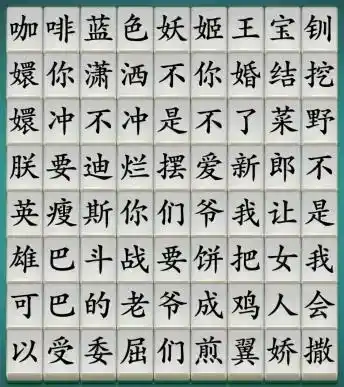 咖啡蓝色妖姬王宝钏
嬛你潇洒不你婚结挖
嬛冲不冲是不了菜野
朕要迪烂摆爱新郎不
英瘦斯你们爷我让是
雄巴斗战要饼把女我
可巴的老爷成鸡人会
以受委屈们煎翼娇撒